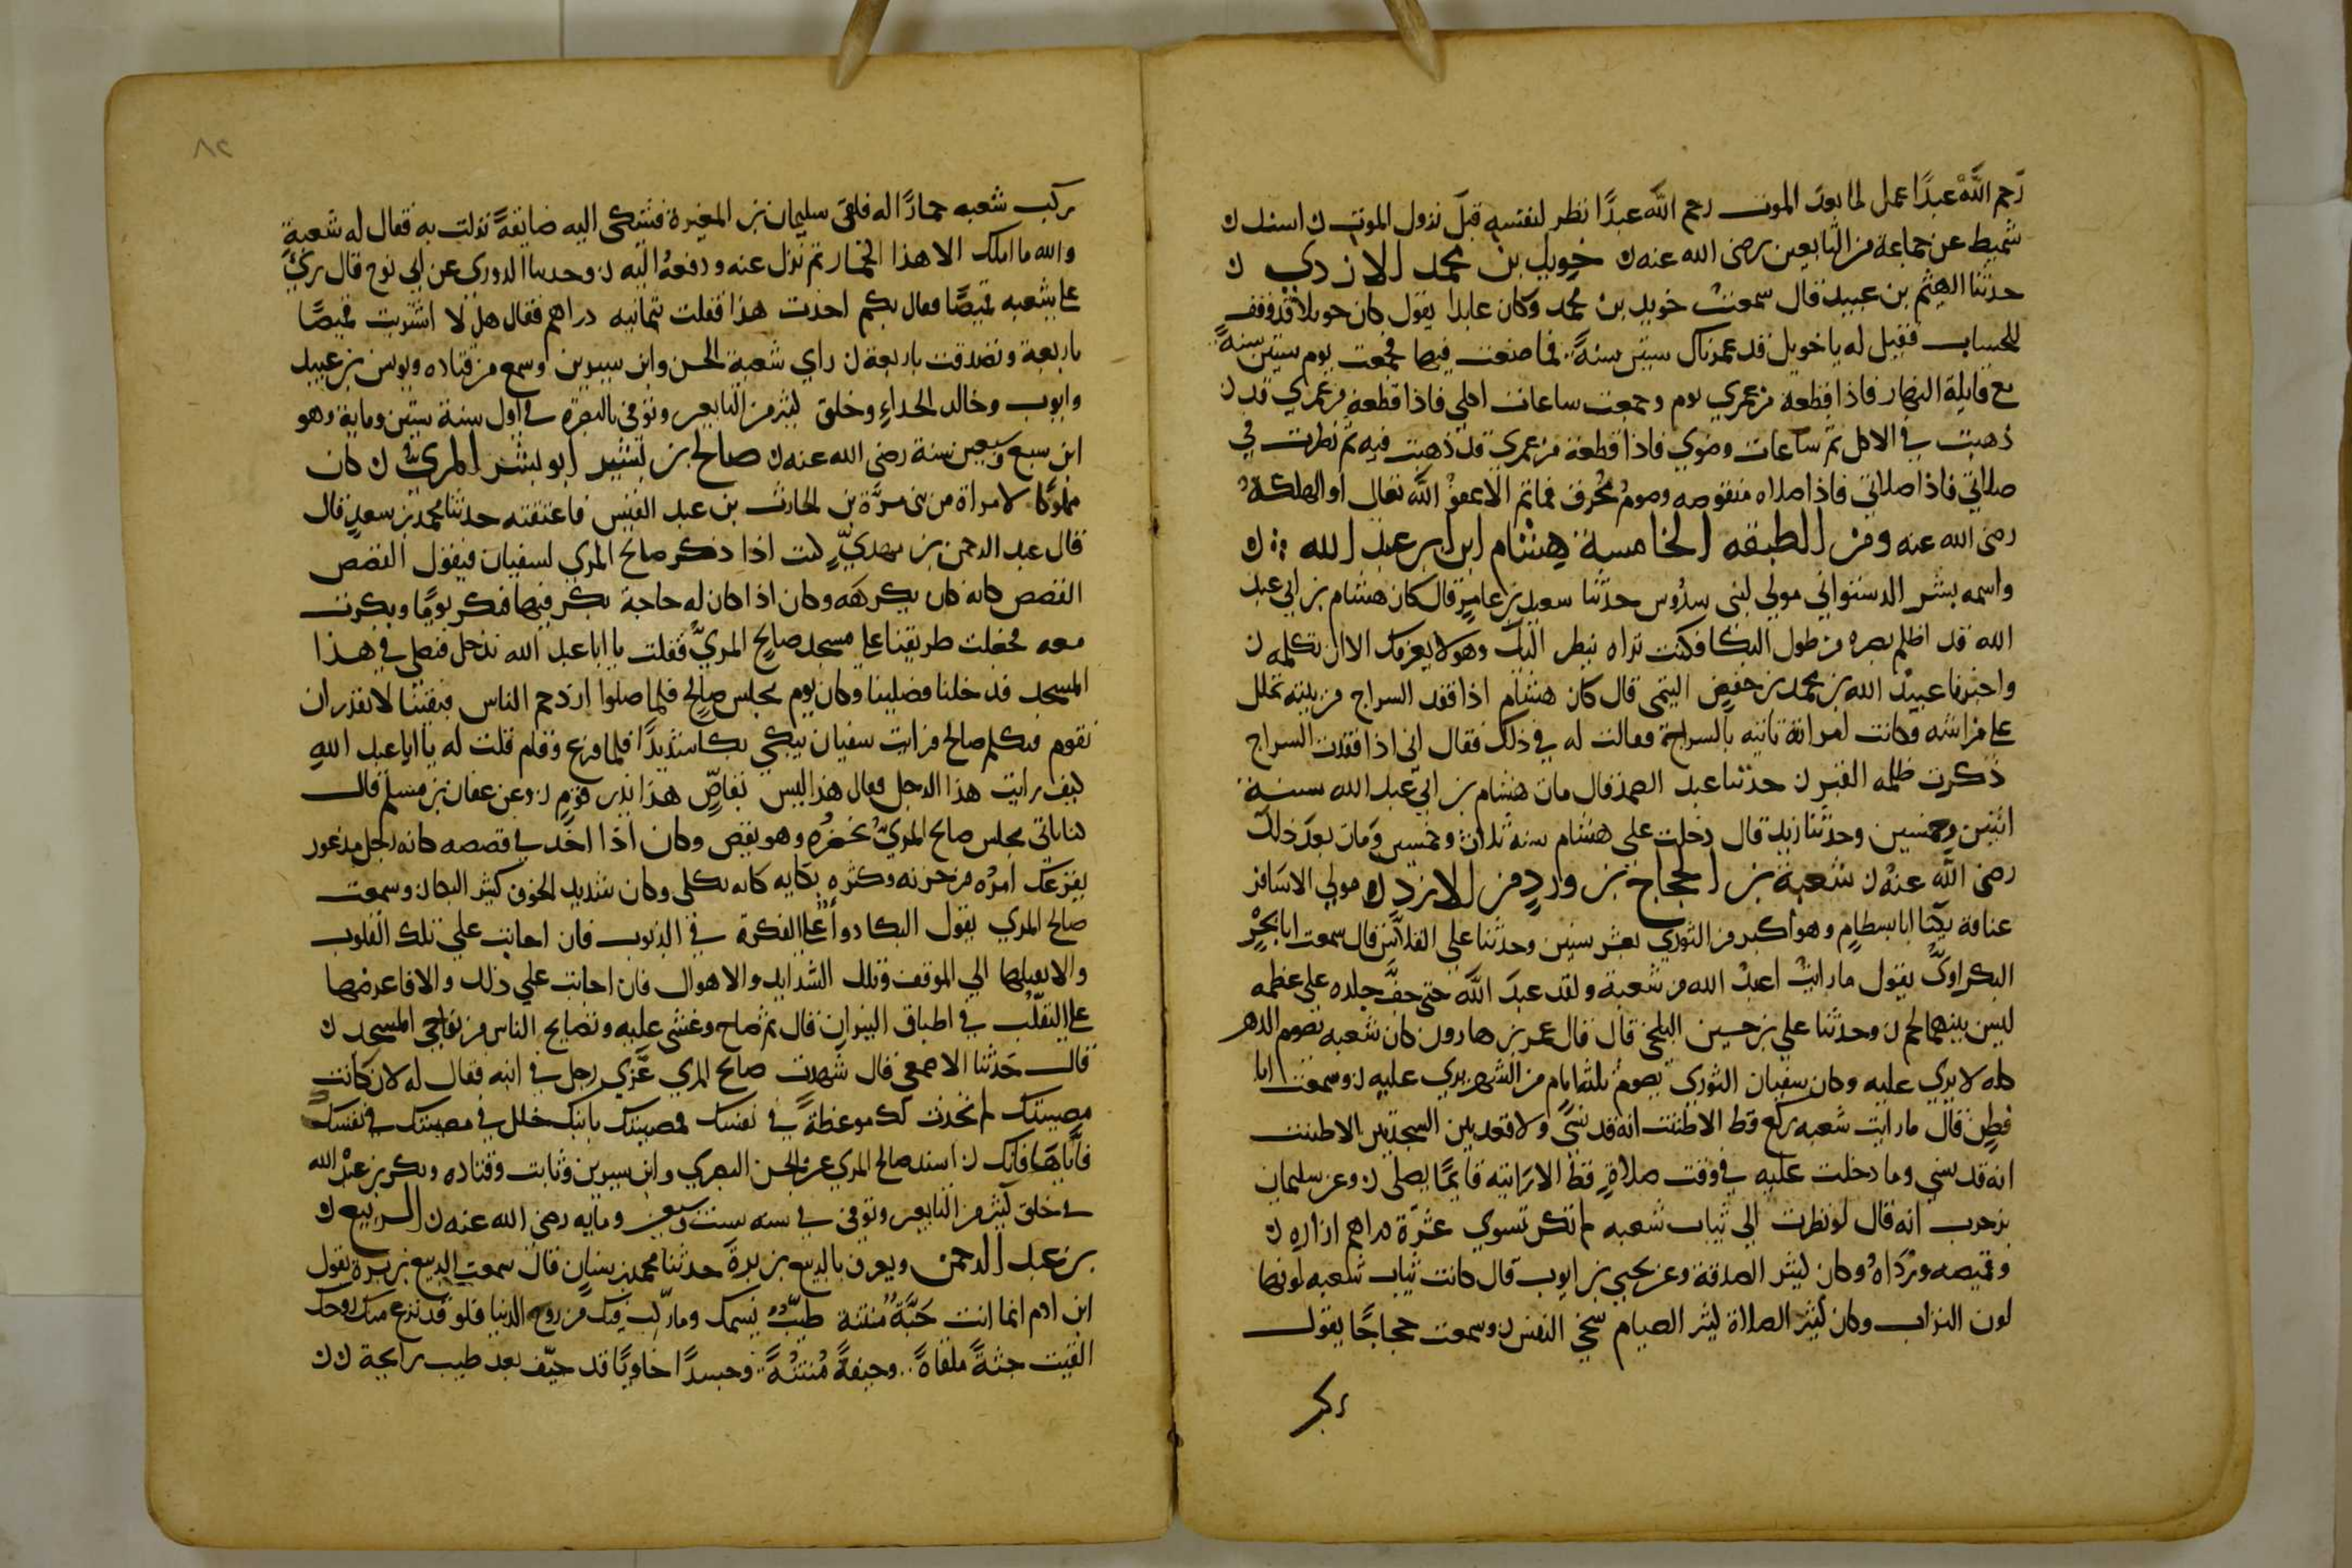 رحم الله عبدًا عمل لما بعد الموت رحم الله عبدًا نظر لنفسه قبل نزول الموت ن اسند ن
شميط عن جماعة من التابعين رضي الله عنه ن خويل بن محمد الازدي ن
حدثنا الهيثم بن عبيد قال سمعت خويل بن محمد وكان عابدا يقول كان خويلا قد وقف
للحساب فقيل له يا خويل قد عمرناك ستين سنةً فما صنعت فيها فجمعت نوم ستين سنةً
مع قايلة النهار فاذا قطعة من عمري نوم وجمعت ساعات اكلي فاذا قطعة من عمري قد ن
ذهبت في الاكل ثم ساعات وضوي فاذا قطعة من عمري قد ذهبت فيه ثم نظرت في
صلاتي فاذا صلاتي فاذا صلاه منقوصه وصومٌ مُخرق فما تم الا عفو الله تعالى او الهلكةُ
رضي الله عنه ومن الطبقه الخامسة هشام ابن ابي عبد الله ن
واسمه بشر الدستواني مولي لبني سدُوس حدثنا سعيد بن عامرٍ قال كان هشام بن ابي عبد
الله قد اظلم بصره من طول البكا فكنت تراه ينظر اليك وهو لا يعرفك الا ان تكلمه ن
واخبرنا عبيد الله بن محمد بن حفصٍ التيمي قال كان هشام اذا فقد السراج من بيته تململ
علي فراشه وكانت امراته تاتيه بالسراج فقالت له في ذلك فقال اني اذا فقدت السراج
ذكرت ظلمه القبر ن حدثنا عبد الصمد قال مات هشام بن ابي عبد الله سنة
اثنين وخمسين وحدثنا زيد قال دخلت علي هشام سنه ثلاث وخمسين ومات بعد ذلك
رضي الله عنهُ ن شعبة بن الحجاج بن وردٍ من الازد ن مولي الاشاقر
عتاقة يكنا ابا بسطام وهو اكبر من الثوري بعشر سنين وحدثنا علي الفلاس قال سمعت ابا بحرٍ
البكراويَّ يقول ما رايت اعبد لله من شعبة ولقد عبد الله حتى جفَّ جلده علي عظمه
ليس بينهما لحم ن وحدثنا علي بن حسين البلخي قال قال عمر بن هارون كان شعبه يصوم الدهر
كله لا يري عليه وكان سفيان الثوري يصوم ثلثه ايام من الشهر يري عليه ن وسمعت ابا
قطن قال ما رايت شعبه ركع قط الا ظننت انه قد نسي ولا قعد بين السجدتين الا ظننت
انه قد نسي وما دخلت عليه في وقت صلاةٍ قط الا رايته قايمًا يصلي ن وعن سليمان
بن حرب انه قال لو نظرت الي ثياب شعبه لم تكن تسوي عشرة دراهم ازاره ن
وقميصه ورداهُ وكان كثير الصدقة وعن يحيى بن ايوب قال كانت ثياب شعبه لونها
لون التراب وكان كثير الصلاة كثير الصيام سخي النفس ن وسمعت حجاجًا يقول
ركب
٨٢
ركب شعبه حمارًا له فلقي سليمان بن المغيرة فشكي اليه ضايقةً نزلت به فقال له شعبة
والله ما املك الا هذا الحمار ثم نزل عنه ودفعهُ اليه ن وحدثنا الدوري عن ابي نوح قال رئي
علي شعبه قميصًا فقال بكم اخذت هذا فقلت بثمانيه دراهم فقال هل لا اشتريت قميصًا
باربعة وتصدقت باربعة ن راي شعبة الحسن وابن سيرين وسمع من قتاده ويونس بن عبيد
وايوب وخالد الحذاءِ وخلق كثير من التابعين وتوفي بالبصرة في اول سنة ستين وماية وهو
ابن سبع وسبعين سنة رضي الله عنه ن صالح بن بشير ابو بشر المريُّ ن كان
مملوكًا لامراة من بني مرَّة بن الحارث بن عبد القيس فاعتقته حدثنا محمد بن سعيدٍ قال
قال عبد الرحمن بن مهديٍّ كنت اذا ذكر صالح المري لسفيان فيقول القصص
القصص كانه كان يكرههَ وكان اذا كان له حاجة بكر فيها فبكر يومًا وبكرت
معه فجعلت طريقنا علي مسجد صالح المريُّ فقلت يا ابا عبد الله ندخل فنصلي في هذا
المسجد فدخلنا فصلينا وكان يوم مجلس صالح فلما صلوا ازدحم الناس فبقينا لا نقدر ان
نقوم فتكلم صالح فرايت سفيان يبكي بكا شديدًا فلما فرغ وقام قلت له يا ابا عبد الله
كيف رايت هذا الرجل فقال هذا ليس بقاصٍّ هذا نذير قومٍ ن وعن عفان بن مسلم قال
كنا ناتي مجلس صالح المريُّ نحضُره وهو يقص وكان اذا اخذ في قصصه كانه رجل مذعور
يفزعك امرُه من حزنه وكثره بكايه كانه ثكلى وكان شديد الخوف كثير البكا ن وسمعت
صالح المري يقول البكا دواعي الفكرة في الذنوب فان اجابت علي تلك القلوب
والا نقلها الي الموقف وتلك الشدايد والاهوال فان اجابت علي ذلك والا فاعرضها
علي التقلُّب في اطباق النيران قال ثم صاح وغشي عليه وتصايح الناس من نواحي المسجد ن
قال حَدثنا الاصمعي قال شهدت صالح المري عَزَّي رجل في ابنه فقال له لان كانت
مصيبتك لم تحدث لك موعظةً في نفسك فمصيبتك بابنك خلل في مصيبتك في نفسك
فاياها فابك ن اسند صالح المري عن الحسن البصري وابن سيرين وثابت وقتاده وبكر بن عبد الله
في خلق كثير من التابعين وتوفي في سنه ست وسبعين ومايه رضي الله عنه ن الربيع ن
بن عبد الرحمن ويعرف بالربيع بن برةَ حدثنا محمد بن سنان قال سمعت الربيع بن برة يقول
ابن ادم انما انت جَيَّةٌ مُنتنة طيّب نسمك وما ركّب فيك من روح الدنيا فلو قد نزع منك روحك
القيت جثةً ملقاةً وجيفةً مُنتنةً وجسدًا خاويًا قد جيّف بعد طيب رايحة ن ن